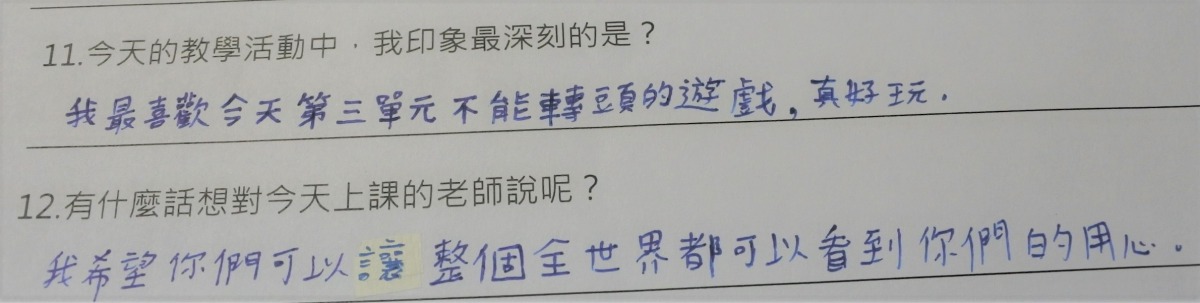 11.今天的教學活動中，我印象最深刻的是？
我最喜歡今天第三單元不能轉頭的遊戲，真好玩．
12.有什麼話想對今天上課的老師說呢？
我希望你們可以讓整個全世界都可以看到你們的用心．